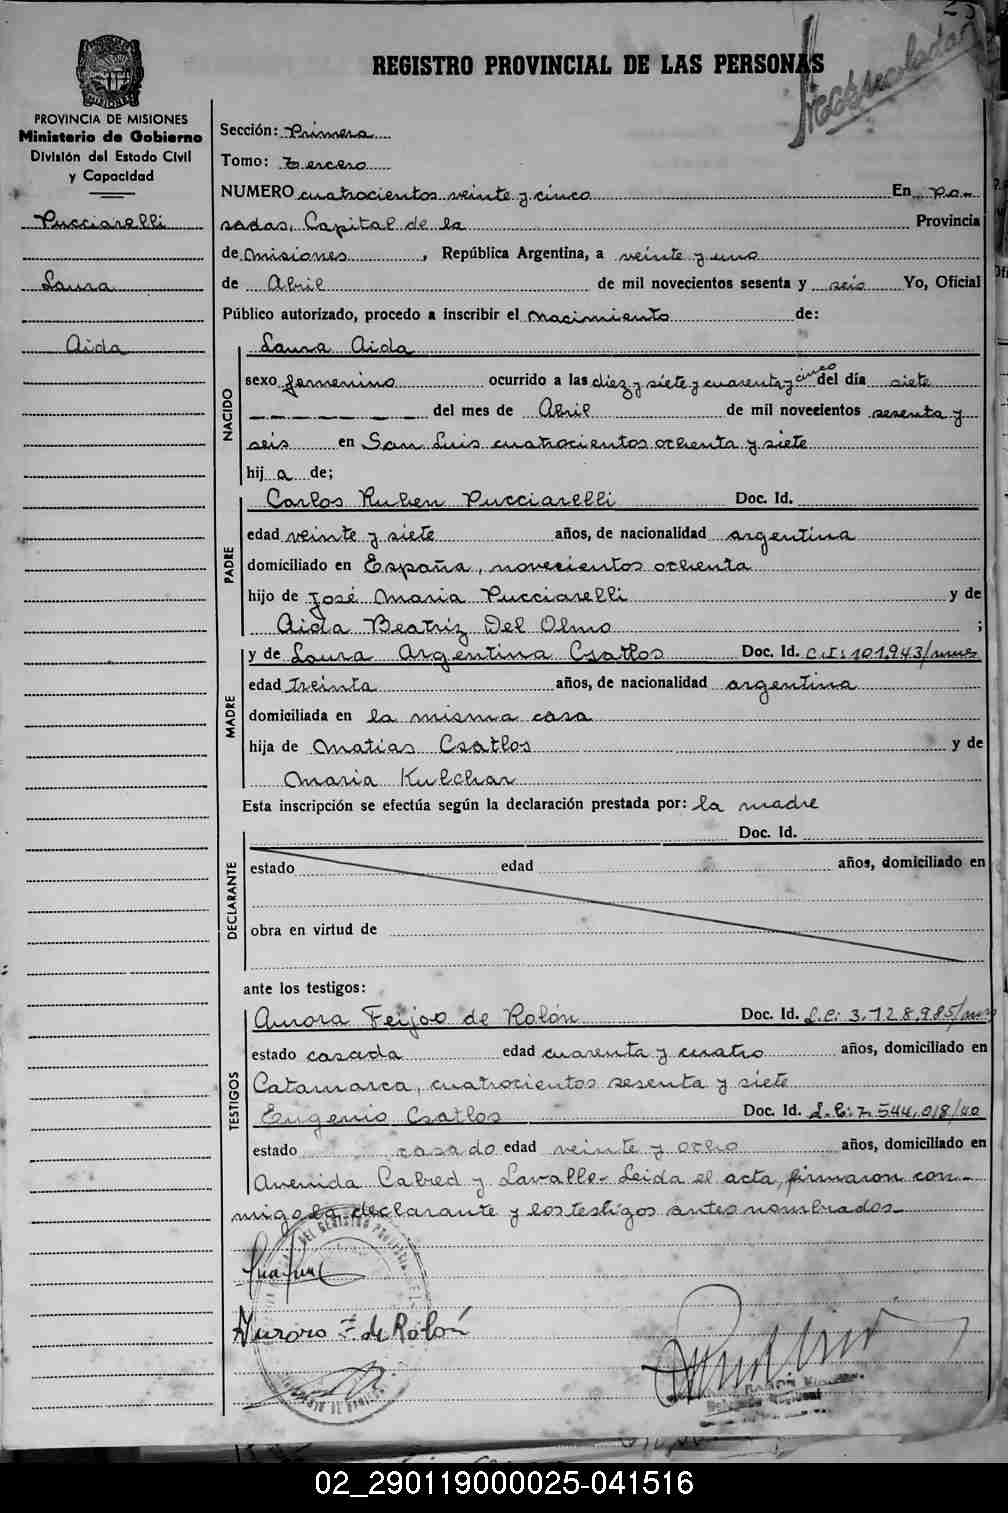 25
REGISTRO PROVINCIAL DE LAS PERSONAS
PROVINCIA DE MISIONES
Ministerio de Gobierno
División del Estado Civil
y Capacidad
Pucciarelli
Laura
Aida
Sección: Primera
Tomo: Tercero
NUMERO cuatrocientos veinte y cinco En Po-
sadas, Capital de la Provincia
de Misiones, República Argentina, a veinte y uno
de Abril de mil novecientos sesenta y seis Yo, Oficial
Público autorizado, procedo a inscribir el nacimiento de:
NACIDO
Laura Aida
sexo femenino ocurrido a las diez y siete y cuarenta y cinco del día siete
del mes de Abril de mil novecientos sesenta y
seis en San Luis cuatrocientos ochenta y siete
hij a de;
PADRE
Carlos Ruben Pucciarelli Doc. Id.
edad veinte y siete años, de nacionalidad argentina
domiciliado en España, novecientos ochenta
hijo de José Maria Pucciarelli y de
Aida Beatriz Del Olmo ;
MADRE
y de Laura Argentina Csatlos Doc. Id. C.I: 101.943/mnes
edad treinta años, de nacionalidad argentina
domiciliada en la misma casa
hija de Matias Csatlos y de
Maria Kulchar
Esta inscripción se efectúa según la declaración prestada por: la madre
Doc. Id.
DECLARANTE
estado edad años, domiciliado en
obra en virtud de
ante los testigos:
TESTIGOS
Aurora Feijoo de Rolón Doc. Id. L.C: 3.128.985/mnes
estado casada edad cuarenta y cuatro años, domiciliado en
Catamarca, cuatrocientos sesenta y siete
Eugenio Csatlos Doc. Id. L.E: 7.544.018/40
estado casado edad veinte y ocho años, domiciliado en
Avenida Cabred y Lavalle- Leida el acta, firmaron con-
migo la declarante y los testigos antes nombrados
Aurora F de Rolón
02_290119000025-041516